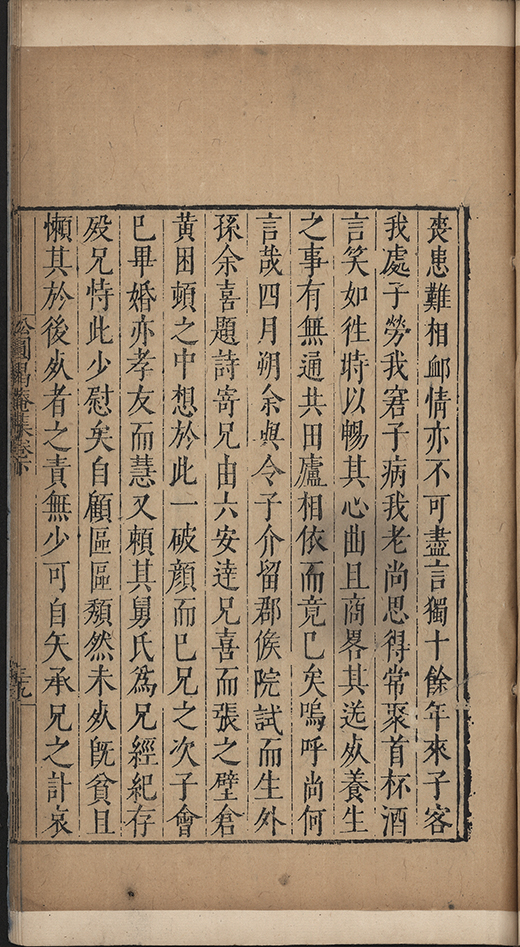 喪患難相卹情亦不可盡言獨十餘年來子客
我處子勞我窘子病我老尚思得常聚首杯酒
言笑如徃時以暢其心曲且商畧其送死養生
之事有無通共田廬相依而竟已矣嗚呼尚何
言哉四月朔余與令子介留郡俟院試而生外
孫余喜題詩寄兄由六安達兄喜而張之壁倉
黃困頓之中想於此一破顏而已兄之次子會
已畢婚亦孝友而慧又賴其舅氏為兄經紀存
歿兄恃此少慰矣自顧區區頹然未死旣貧且
懶其於後死者之責無少可自矢承兄之訃哀
松圓偈庵集卷下